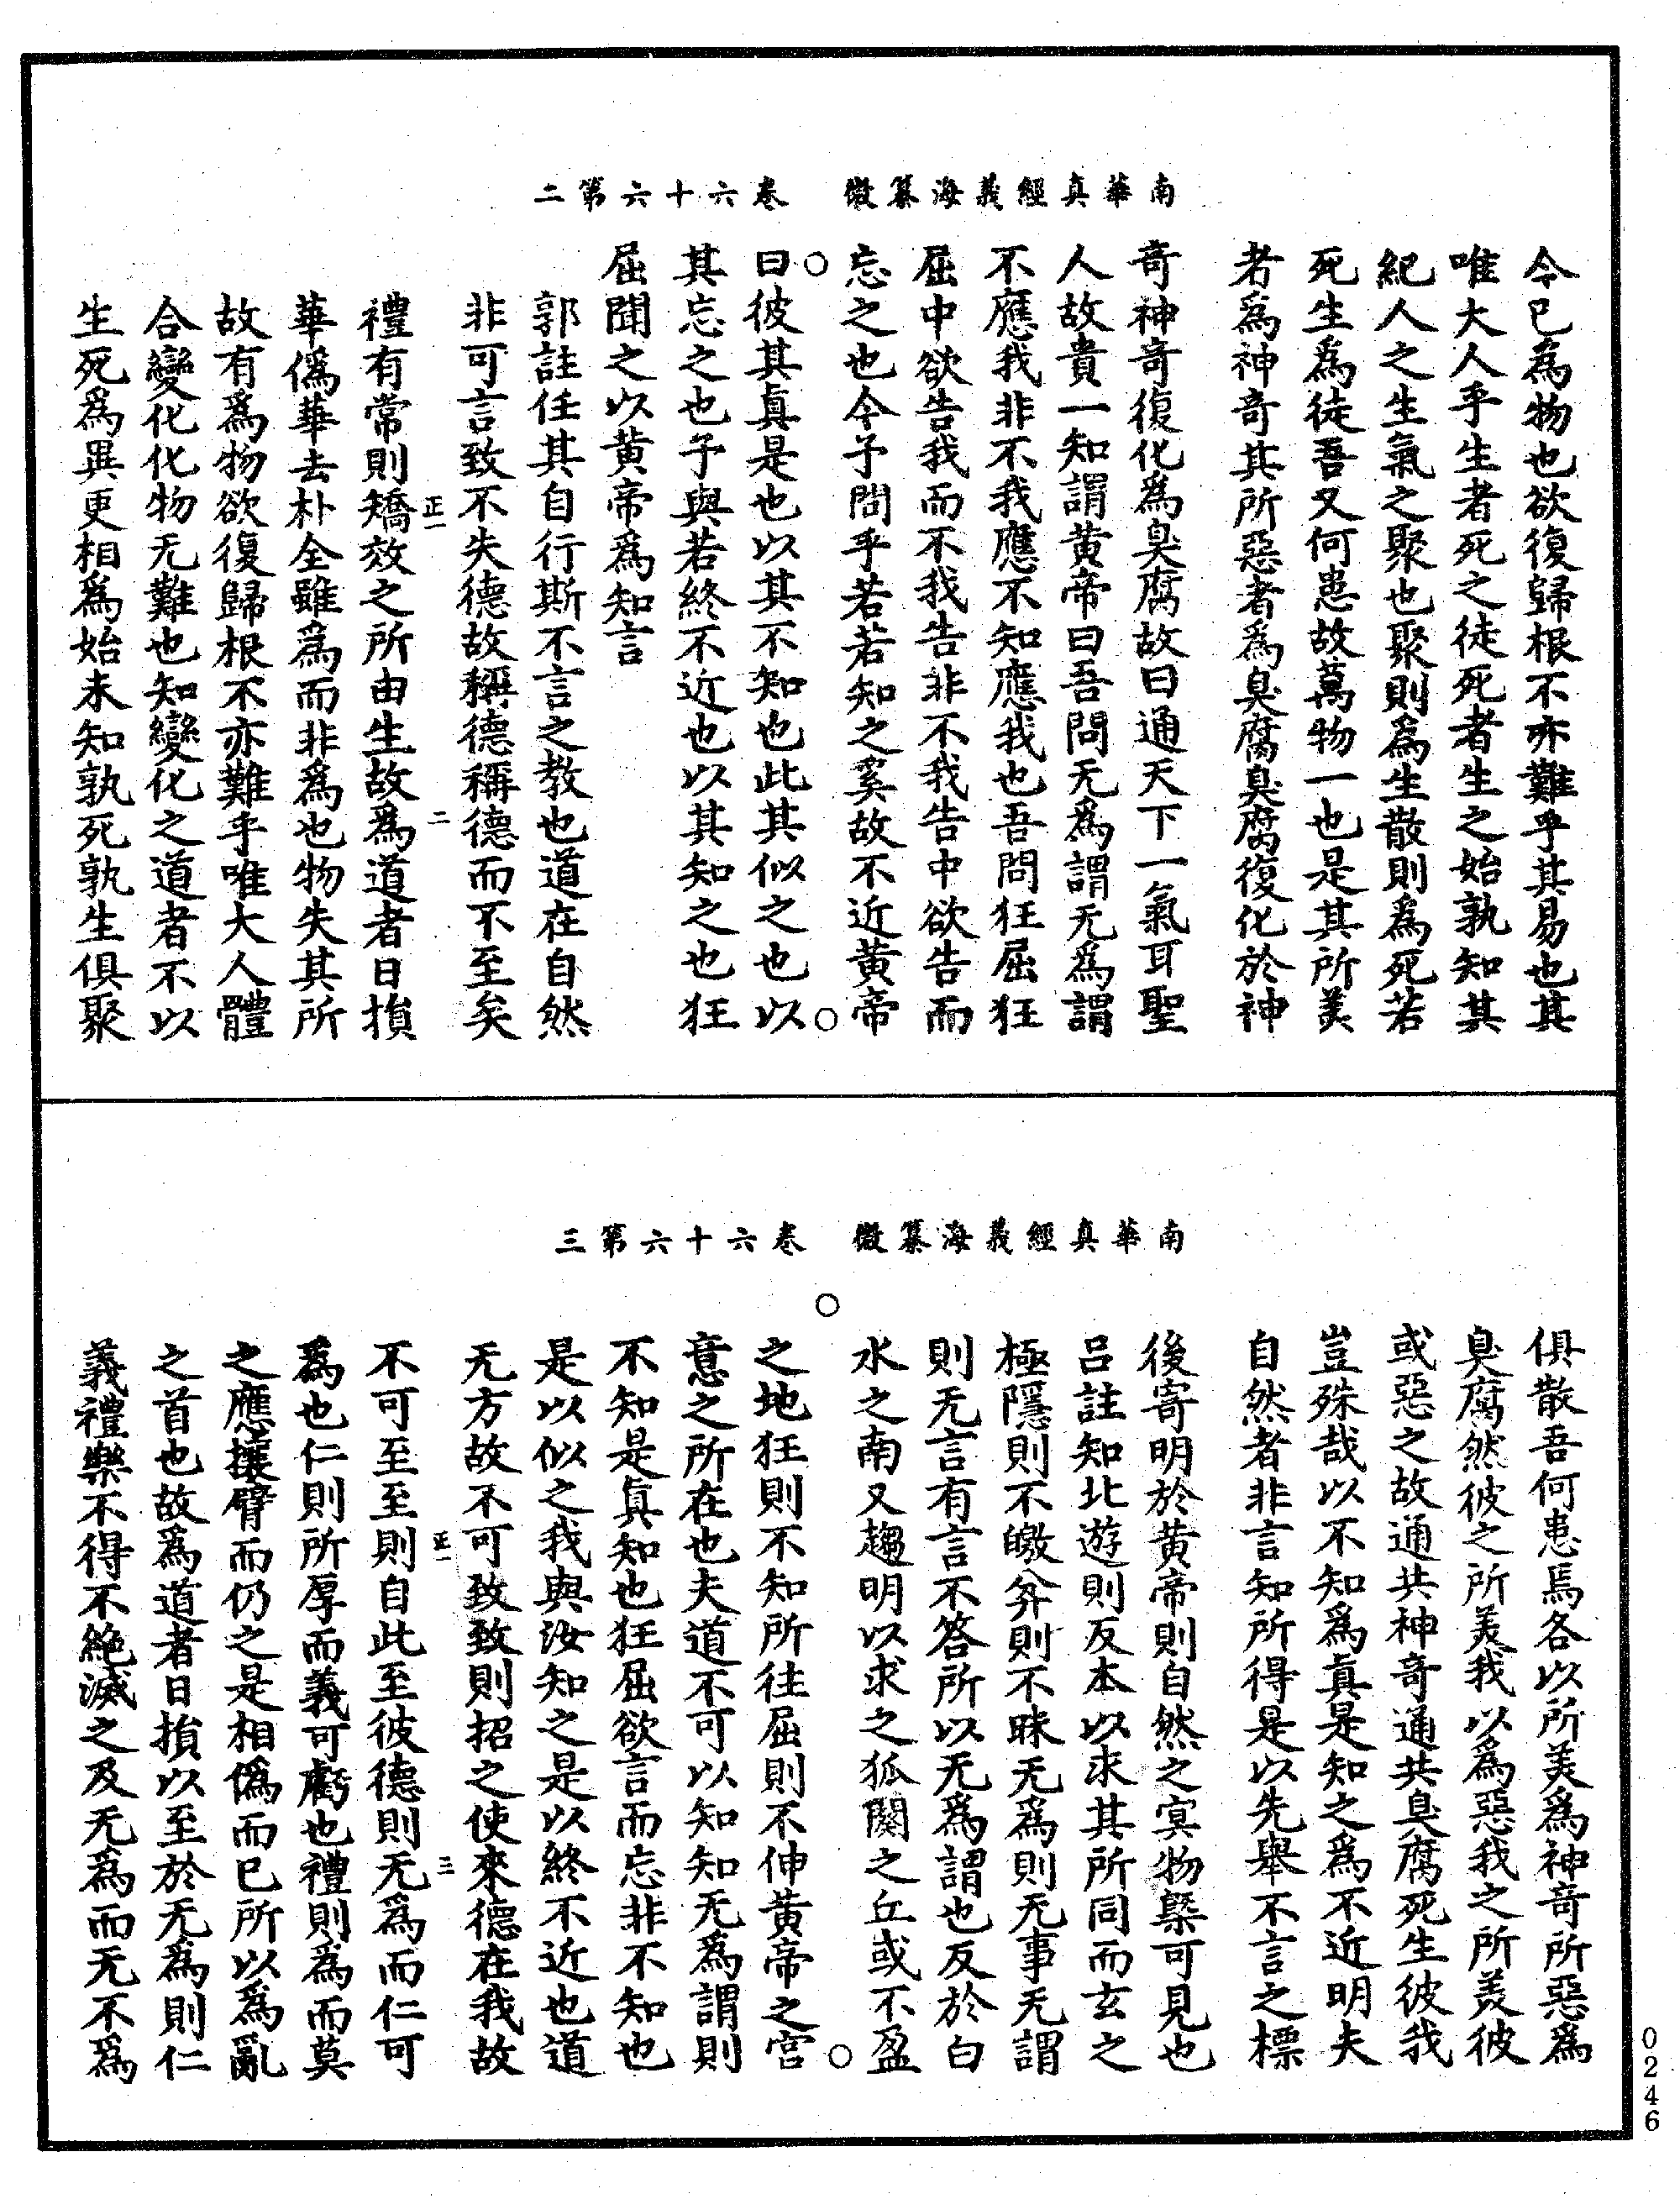 南華真經義海纂微　卷六十六第二
今已為物也欲復歸根不亦難乎其易也其
唯大人乎生者死之徒死者生之始孰知其
紀人之生氣之聚也聚則爲生散則爲死若
死生爲徒吾又何患故萬物一也是其所美
者爲神奇其所惡者爲臭腐臭腐復化於神
奇神奇復化爲臭腐故曰通天下一氣耳聖
人故貴一知謂黄帝曰吾問无為謂无爲謂
不應我非不我應不知應我也吾問狂屈狂
屈中欲告我而不我告非不我告中欲告而
忘之也今予問乎若若知之奚故不近黄帝
曰彼其真是也以其不知也此其似之也以
其忘之也予與若終不近也以其知之也狂
屈聞之以黄帝爲知言
郭註任其自行斯不言之教也道在自然
非可言致不失德故稱德稱德而不至矣
禮有常則矯效之所由生故爲道者日損
華偽華去朴全雖爲而非爲也物失其所
故有爲物欲復歸根不亦難乎唯大人體
合變化化物无難也知變化之道者不以
生死爲異更相爲始未知孰死孰生俱聚
正一
二
南華真經義海纂微　卷六十六第三
俱散吾何患焉各以所美爲神奇所惡爲
臭腐然彼之所美我以爲惡我之所美彼
或惡之故通共神奇通共臭腐死生彼我
豈殊哉以不知爲真是知之爲不近明夫
自然者非言知所得是以先舉不言之標
後寄明於黄帝則自然之冥物槩可見也
吕註知北遊則反本以求其所同而玄之
極隱則不皦弅則不昧无爲則无事无謂
則无言有言不答所以无爲謂也反於白
水之南又趨明以求之狐闋之丘或不盈
之地狂則不知所往屈則不伸黄帝之宫
意之所在也夫道不可以知知无爲謂則
不知是真知也狂屈欲言而忘非不知也
是以似之我與汝知之是以終不近也道
无方故不可致致則招之使來德在我故
不可至至則自此至彼德則无爲而仁可
爲也仁則所厚而義可虧也禮則爲而莫
之應攘臂而仍之是相偽而已所以爲亂
之首也故爲道者日損以至於无爲則仁
義禮樂不得不絶滅之及无爲而无不爲
正一
三
0246